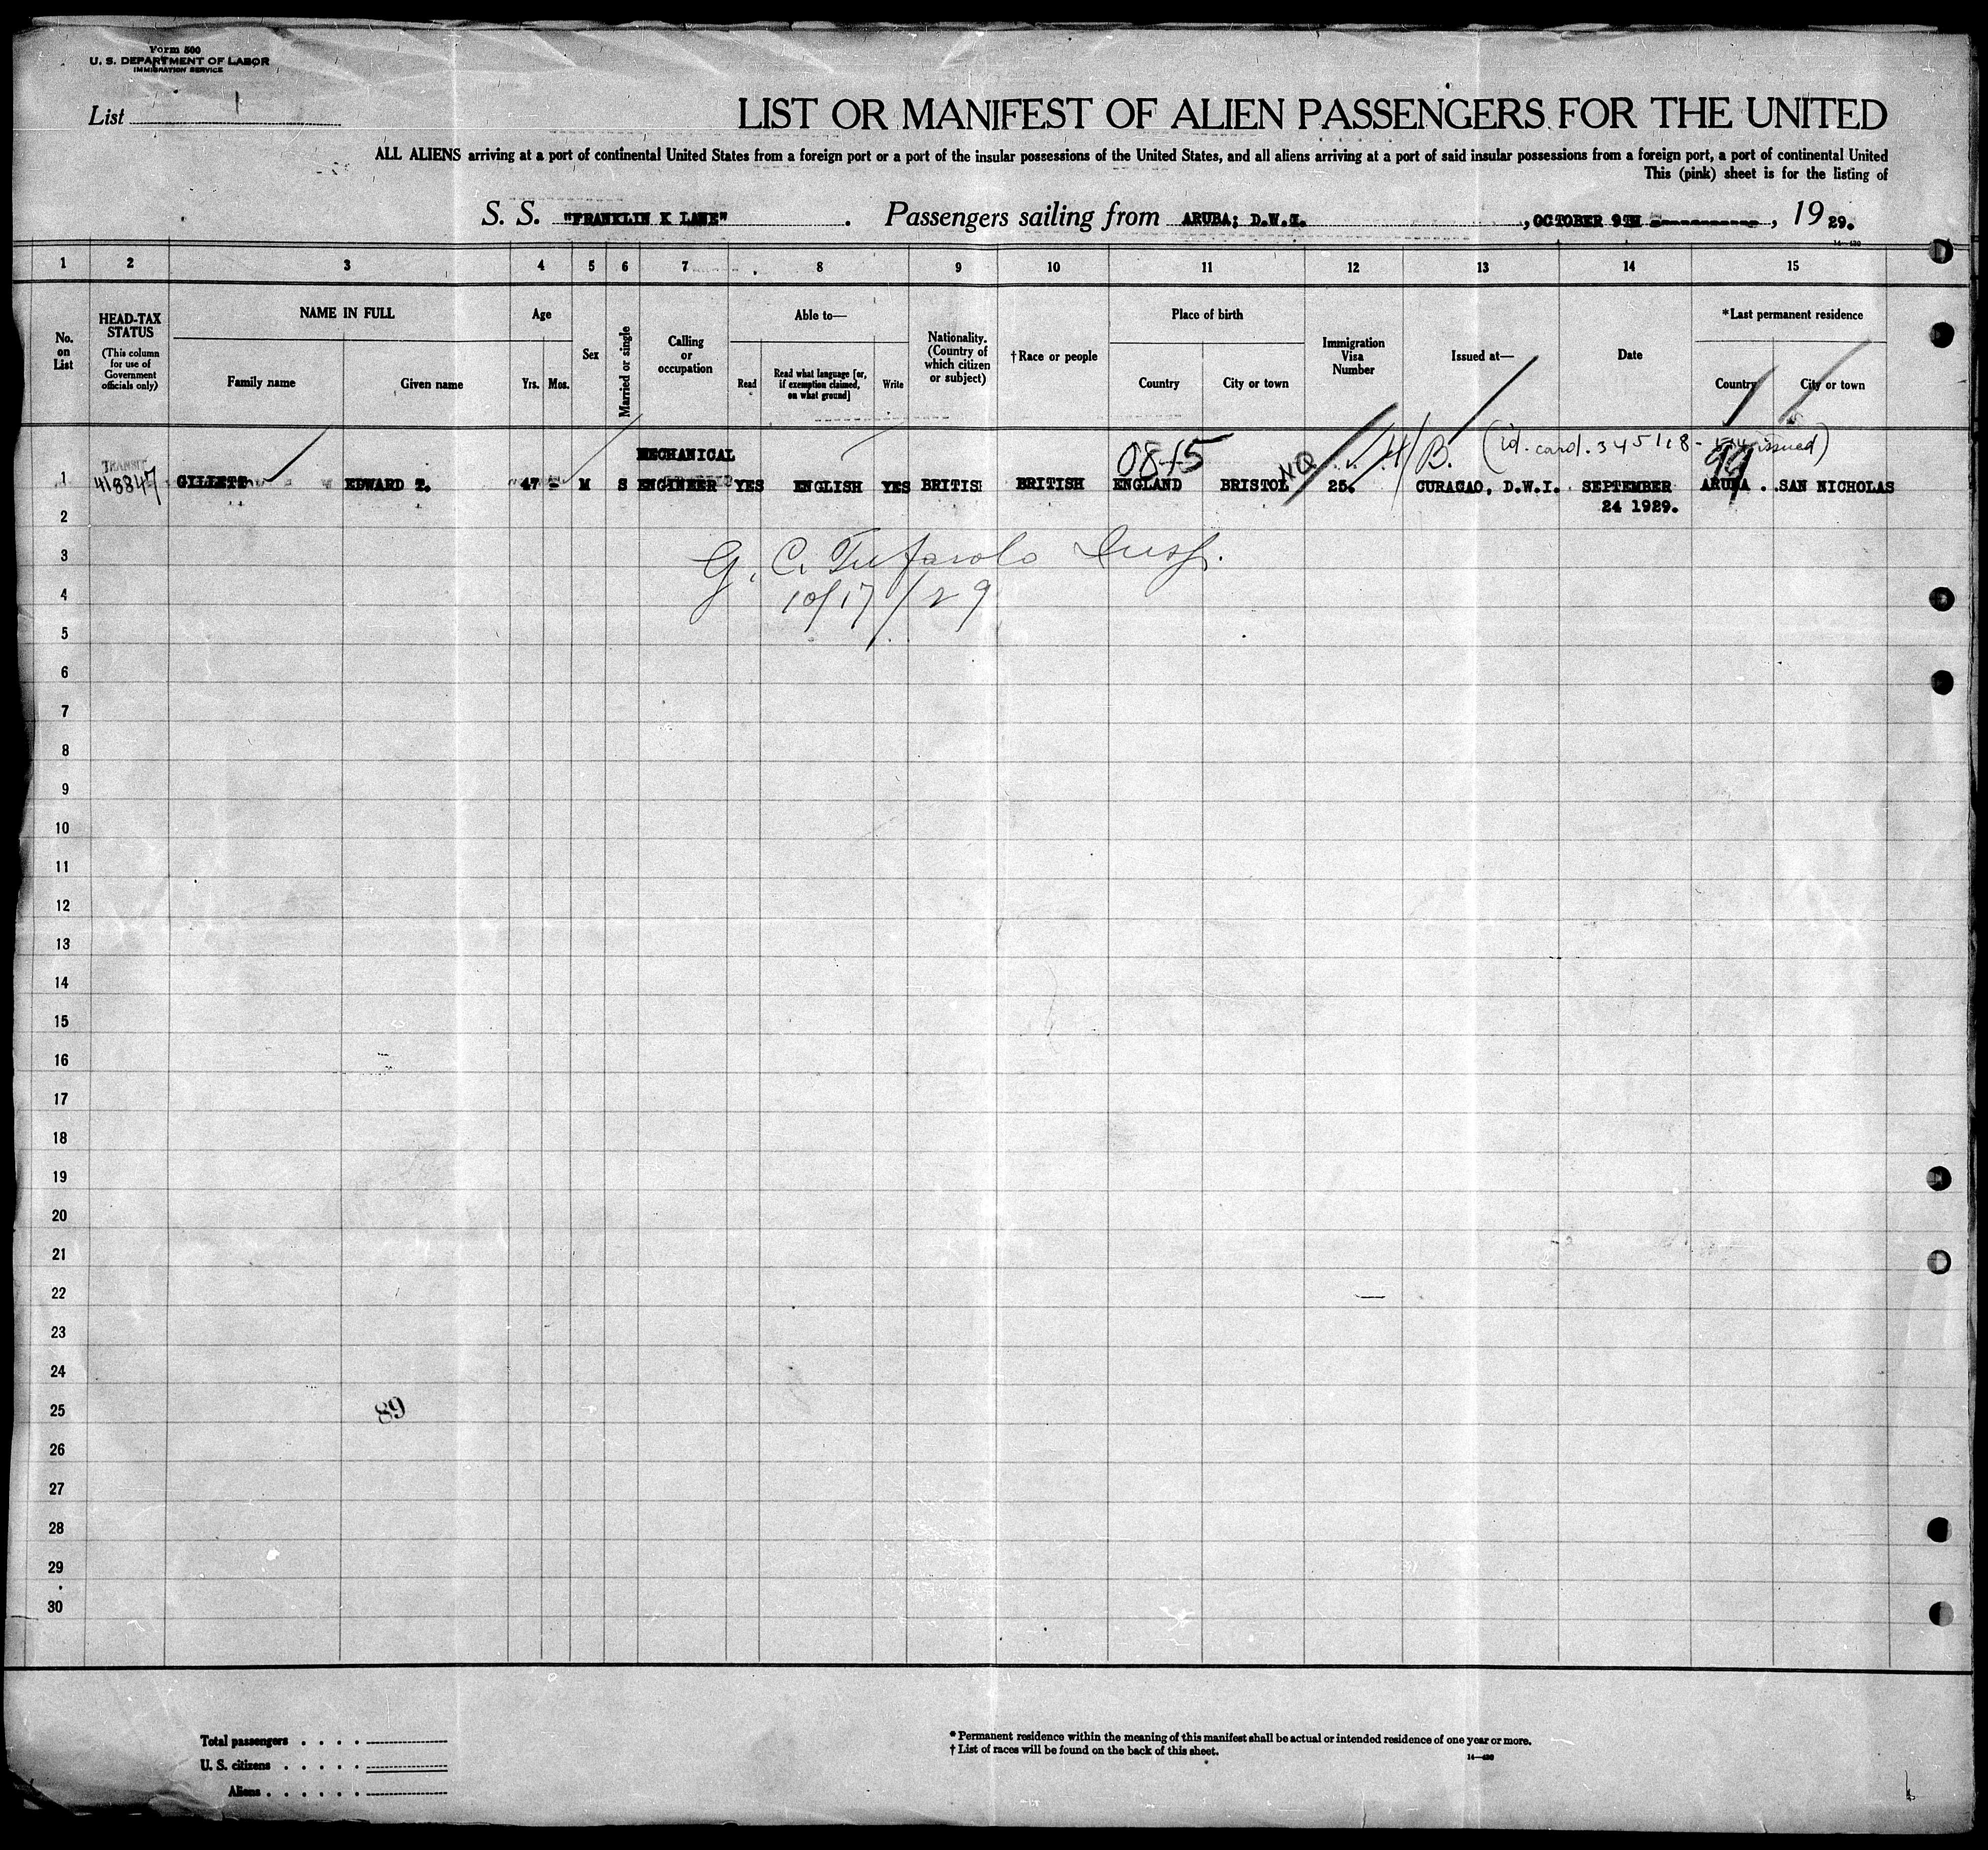 Form 500
U. S. DEPARTMENT OF LABOR
IMMIGRATION SERVICE
List 1
LIST OR MANIFEST OF ALIEN PASSENGERS FOR THE UNITED
ALL ALIENS arriving at a port of continental United States from a foreign port or a port of the insular possessions of the United States, and all aliens arriving at a port of said insular possessions from a foreign port, a port of continental United
This (pink) sheet is for the listing of
S. S. "FRANKLIN K LANE" . Passengers sailing from ARUBA; D.W.I. , OCTOBER 9TH , 19 29.
1 2 3 4 5 6 7 8 9 10 11 12 13 14 15
No. on List
HEAD-TAX STATUS
(This column for use of Government officials only)
NAME IN FULL
Family name
Given name
Age
Yrs. Mos.
Sex
Married or single
Calling or occupation
Able to—
Read
Read what language [or, if exemption claimed, on what ground]
Write
Nationality. (Country of which citizen or subject)
†Race or people
Place of birth
Country
City or town
Immigration Visa Number
Issued at—
Date
*Last permanent residence
Country
City or town
TRANSIT
08-15 NQ B. (id. card. 345118- issued) 99
MECHANICAL
1 418847 GILLETT EDWARD T. 47 - M S ENGINEER YES ENGLISH YES BRITIS BRITISH ENGLAND BRISTOL 25. CURACAO, D.W.I. SEPTEMBER ARUBA . SAN NICHOLAS
24 1929.
2
3 G. C. Tufarolo Insp.
4 10/17/29
5
6
7
8
9
10
11
12
13
14
15
16
17
18
19
20
21
22
23
24
25 89
26
27
28
29
30
Total passengers . . . .
U. S. citizens . . . . .
Aliens . . . . . .
* Permanent residence within the meaning of this manifest shall be actual or intended residence of one year or more.
† List of races will be found on the back of this sheet.
14—430